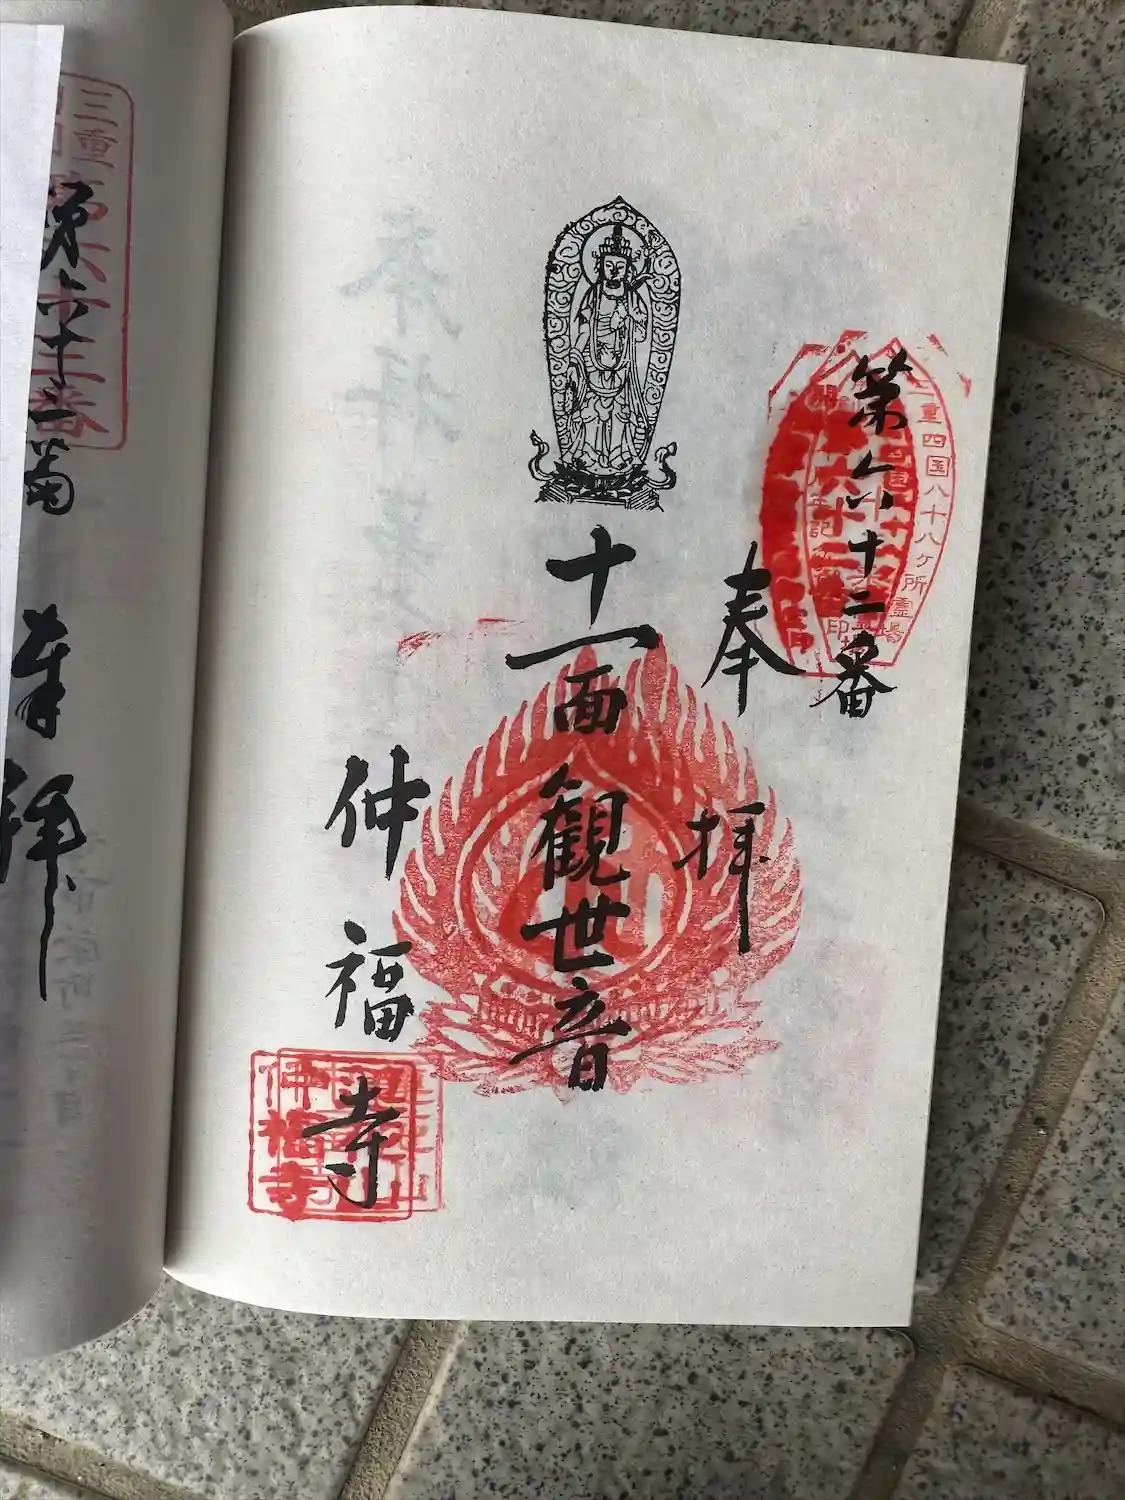 第六十二番
奉拝
十一面観世音
仲福寺
三重四国八十八ヶ所霊場
仲福寺
三重
第六十三番
第六十三番
奉拝